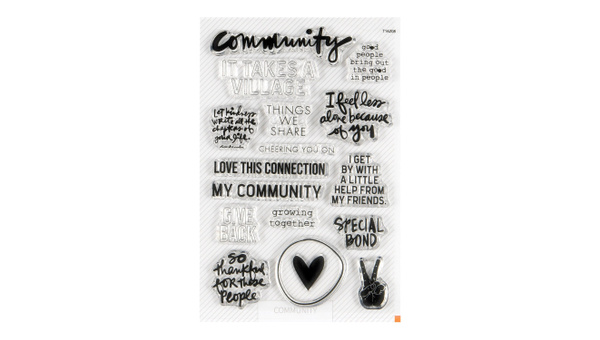 community
good
people
bring out
the good
in people
IT TAKES A
VILLAGE
let kindness
write all the
chapters of
your life.
THINGS
WE
SHARE
I feel less
alone because
of you
CHEERING YOU ON
LOVE THIS CONNECTION
I GET
BY WITH
A LITTLE
HELP FROM
MY FRIENDS.
MY COMMUNITY
GIVE
BACK
growing
together
SPECIAL
BOND
so
thankful
FOR these
People
COMMUNITY